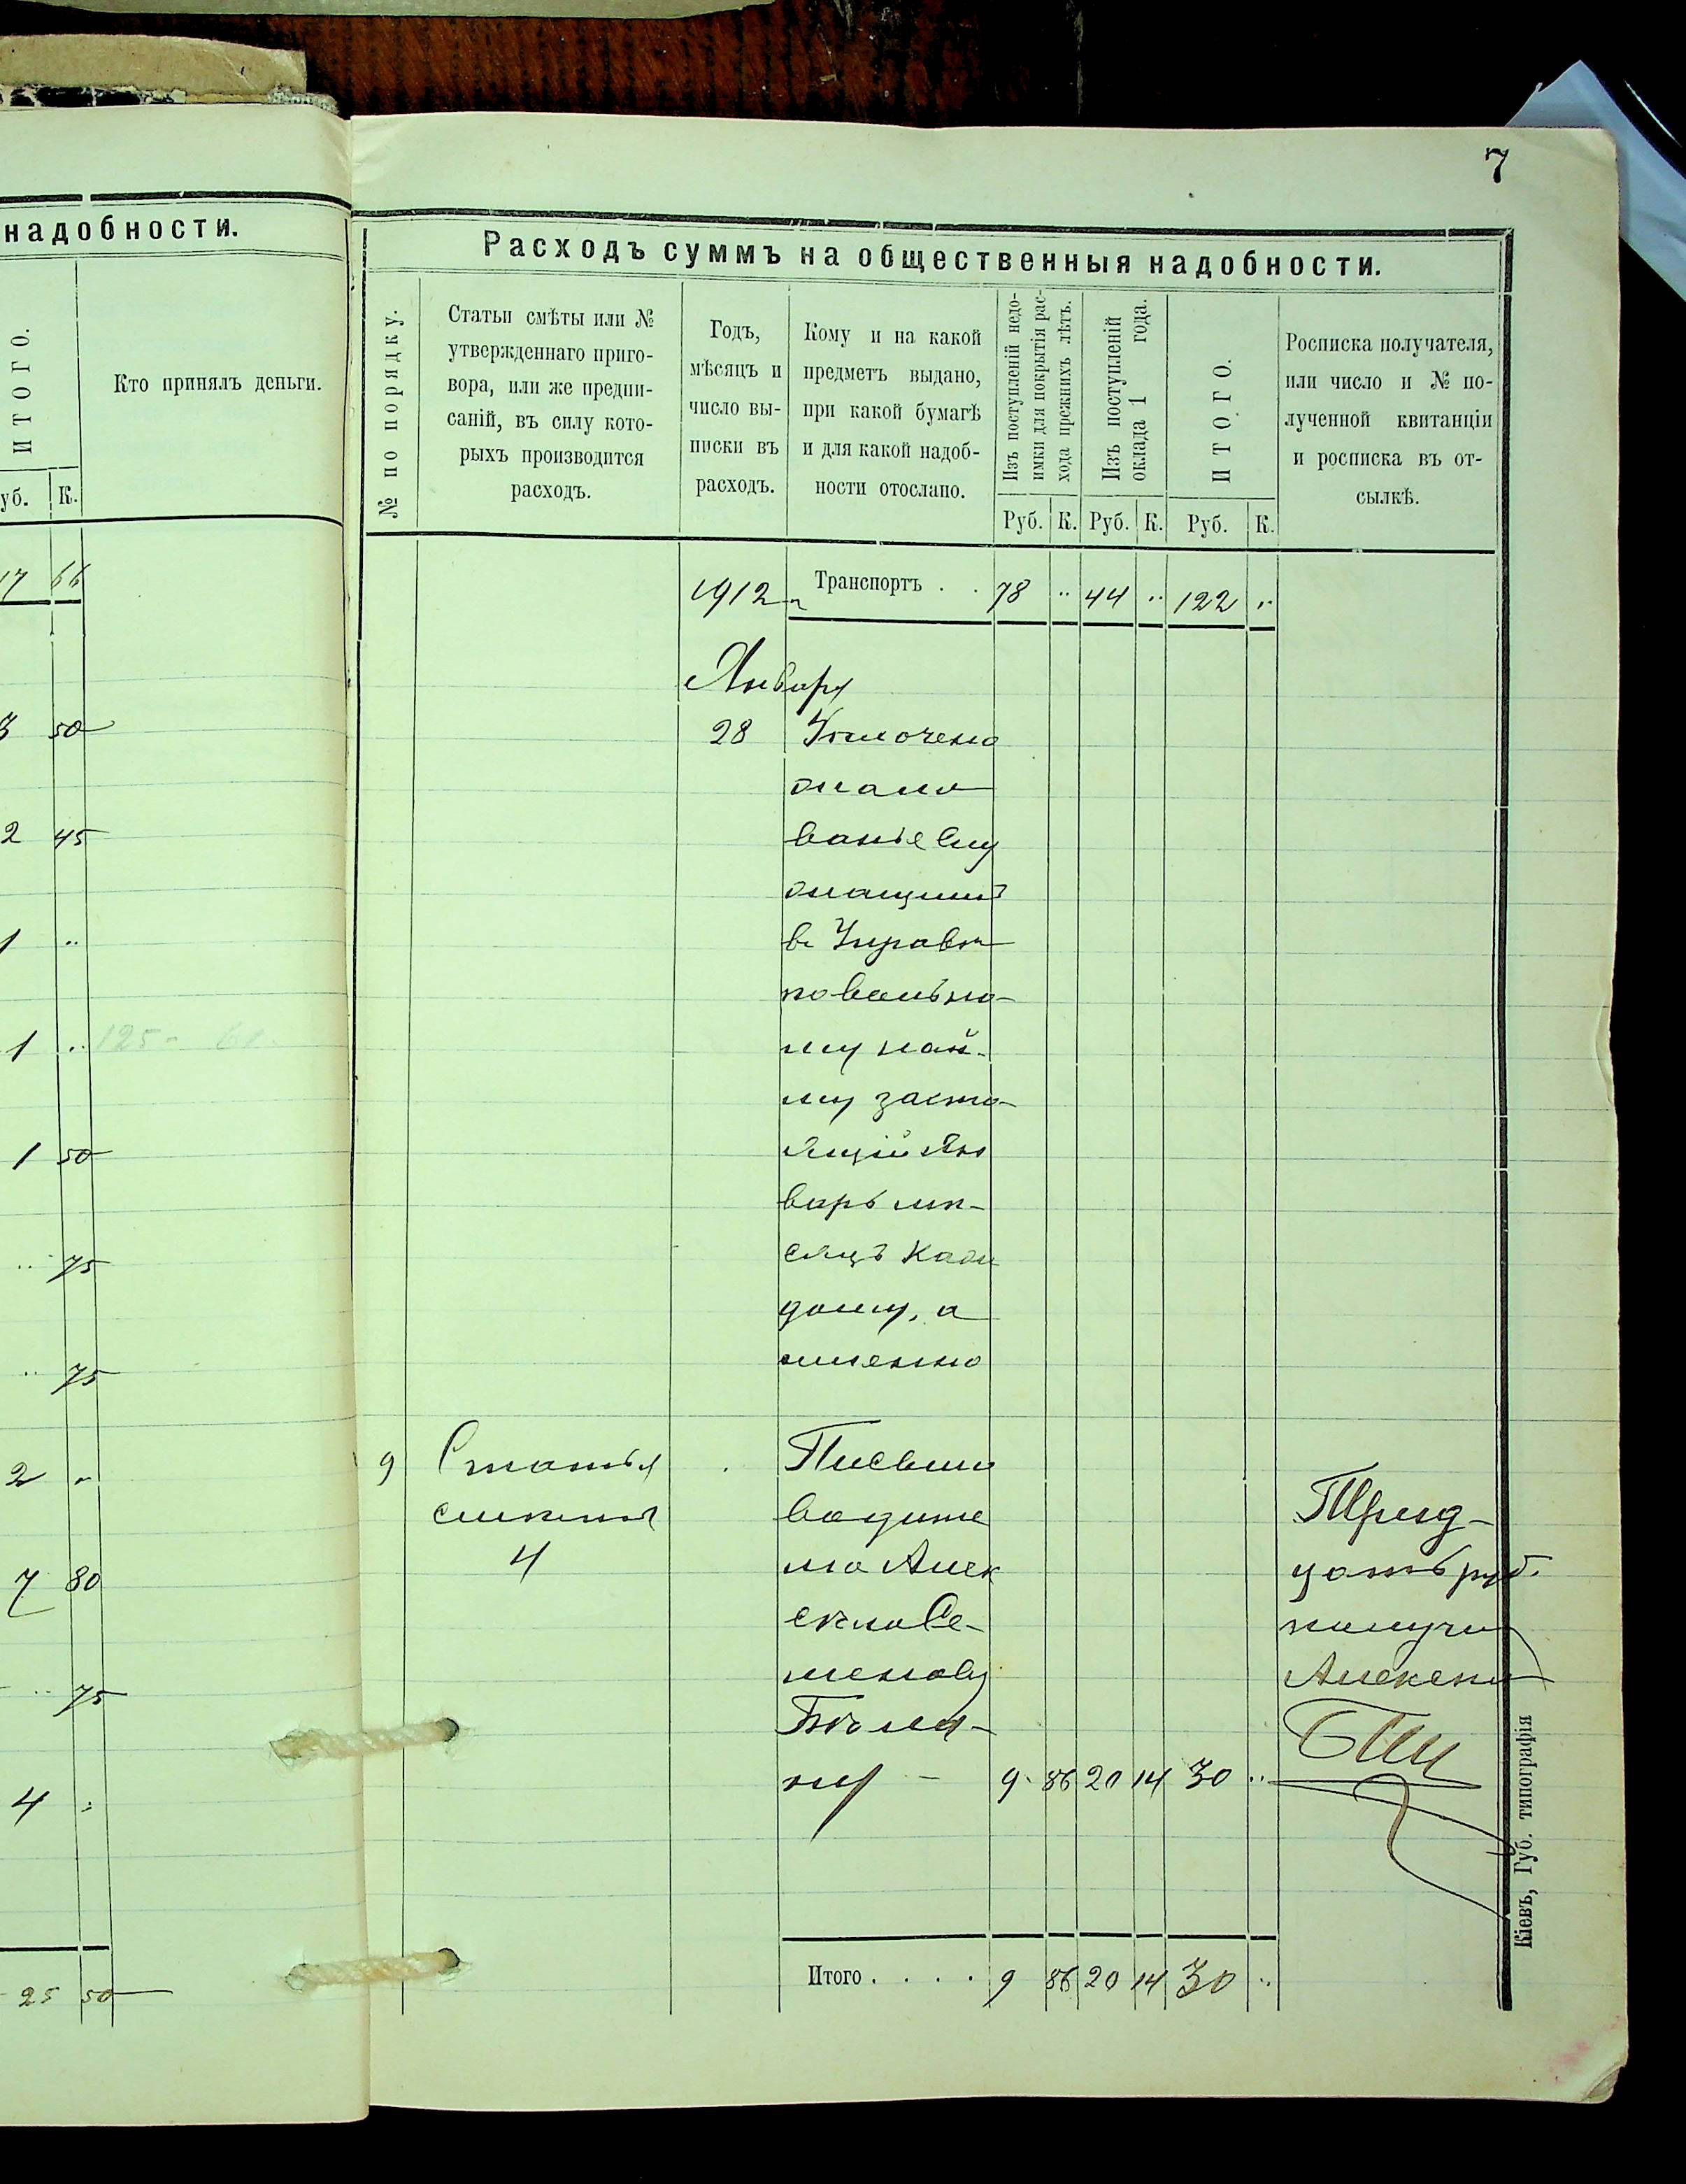 7
надобности.
ИТОГО.
Кто принялъ деньги.
уб. К.
17 66
3 50
2 45
1 ..
1 .. 125 -
1 50
.. 75
.. 75
2 ..
7 80
.. 75
4 ..
25 50
Расходъ суммъ на общественныя надобности.
№ по порядку.
Статьи смѣты или №
утвержденнаго приго-
вора, или же предпи-
саній, въ силу кото-
рыхъ производится
расходъ.
Годъ,
мѣсяцъ и
число вы-
писки въ
расходъ.
Кому и на какой
предметъ выдано,
при какой бумагѣ
и для какой надоб-
ности отослано.
Изъ поступленій недо-
имки для покрытія рас-
хода прежнихъ лѣтъ.
Изъ поступленій
оклада 1 года.
ИТОГО.
Росписка получателя,
или число и № по-
лученной квитанціи
и росписка въ от-
сылкѣ.
Руб. К. Руб. К. Руб. К.
1912 Транспортъ . . 78 .. 44 .. 122 ..
Январ
28 Уплочено
жало
ванье Слу
жащимъ
в Управѣ
по вольно-
му най-
му за сто-
ящій Ян
варь мѣ-
сяцъ Каж
дому, а
именно
9 Статья
смѣты
4
Писмо
водите
лю Алек
сѣю Се-
менову
Бѣло-
му - 9 86 20 14 30 ..
Трид-
цать руб.
получи
Алексей
Итого . . . . 9 86 20 14 30 ..
Кіевъ, Губ. типографія